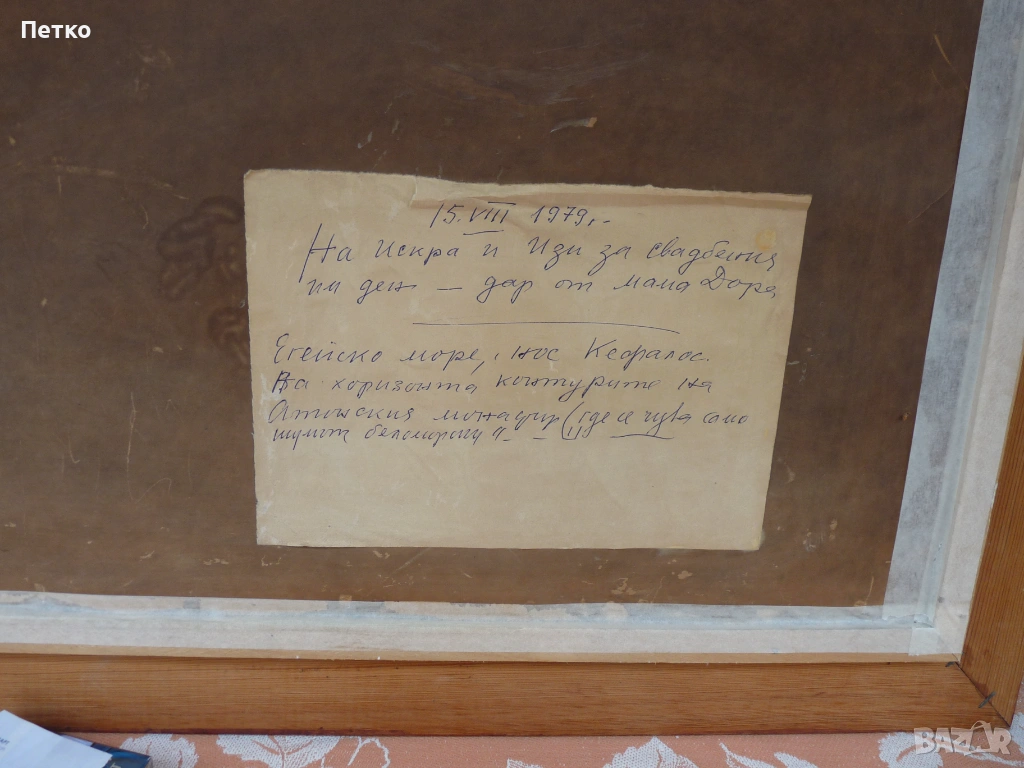 Петко
15.VIII 1979 г.
На Искра и Изи за сватбения
им ден — дар от мама Дора
Егейско море, нос Кефалос.
На хоризонта контурите на
Атонския манастир („где се чува само
шумът беломорски"
BAZAR